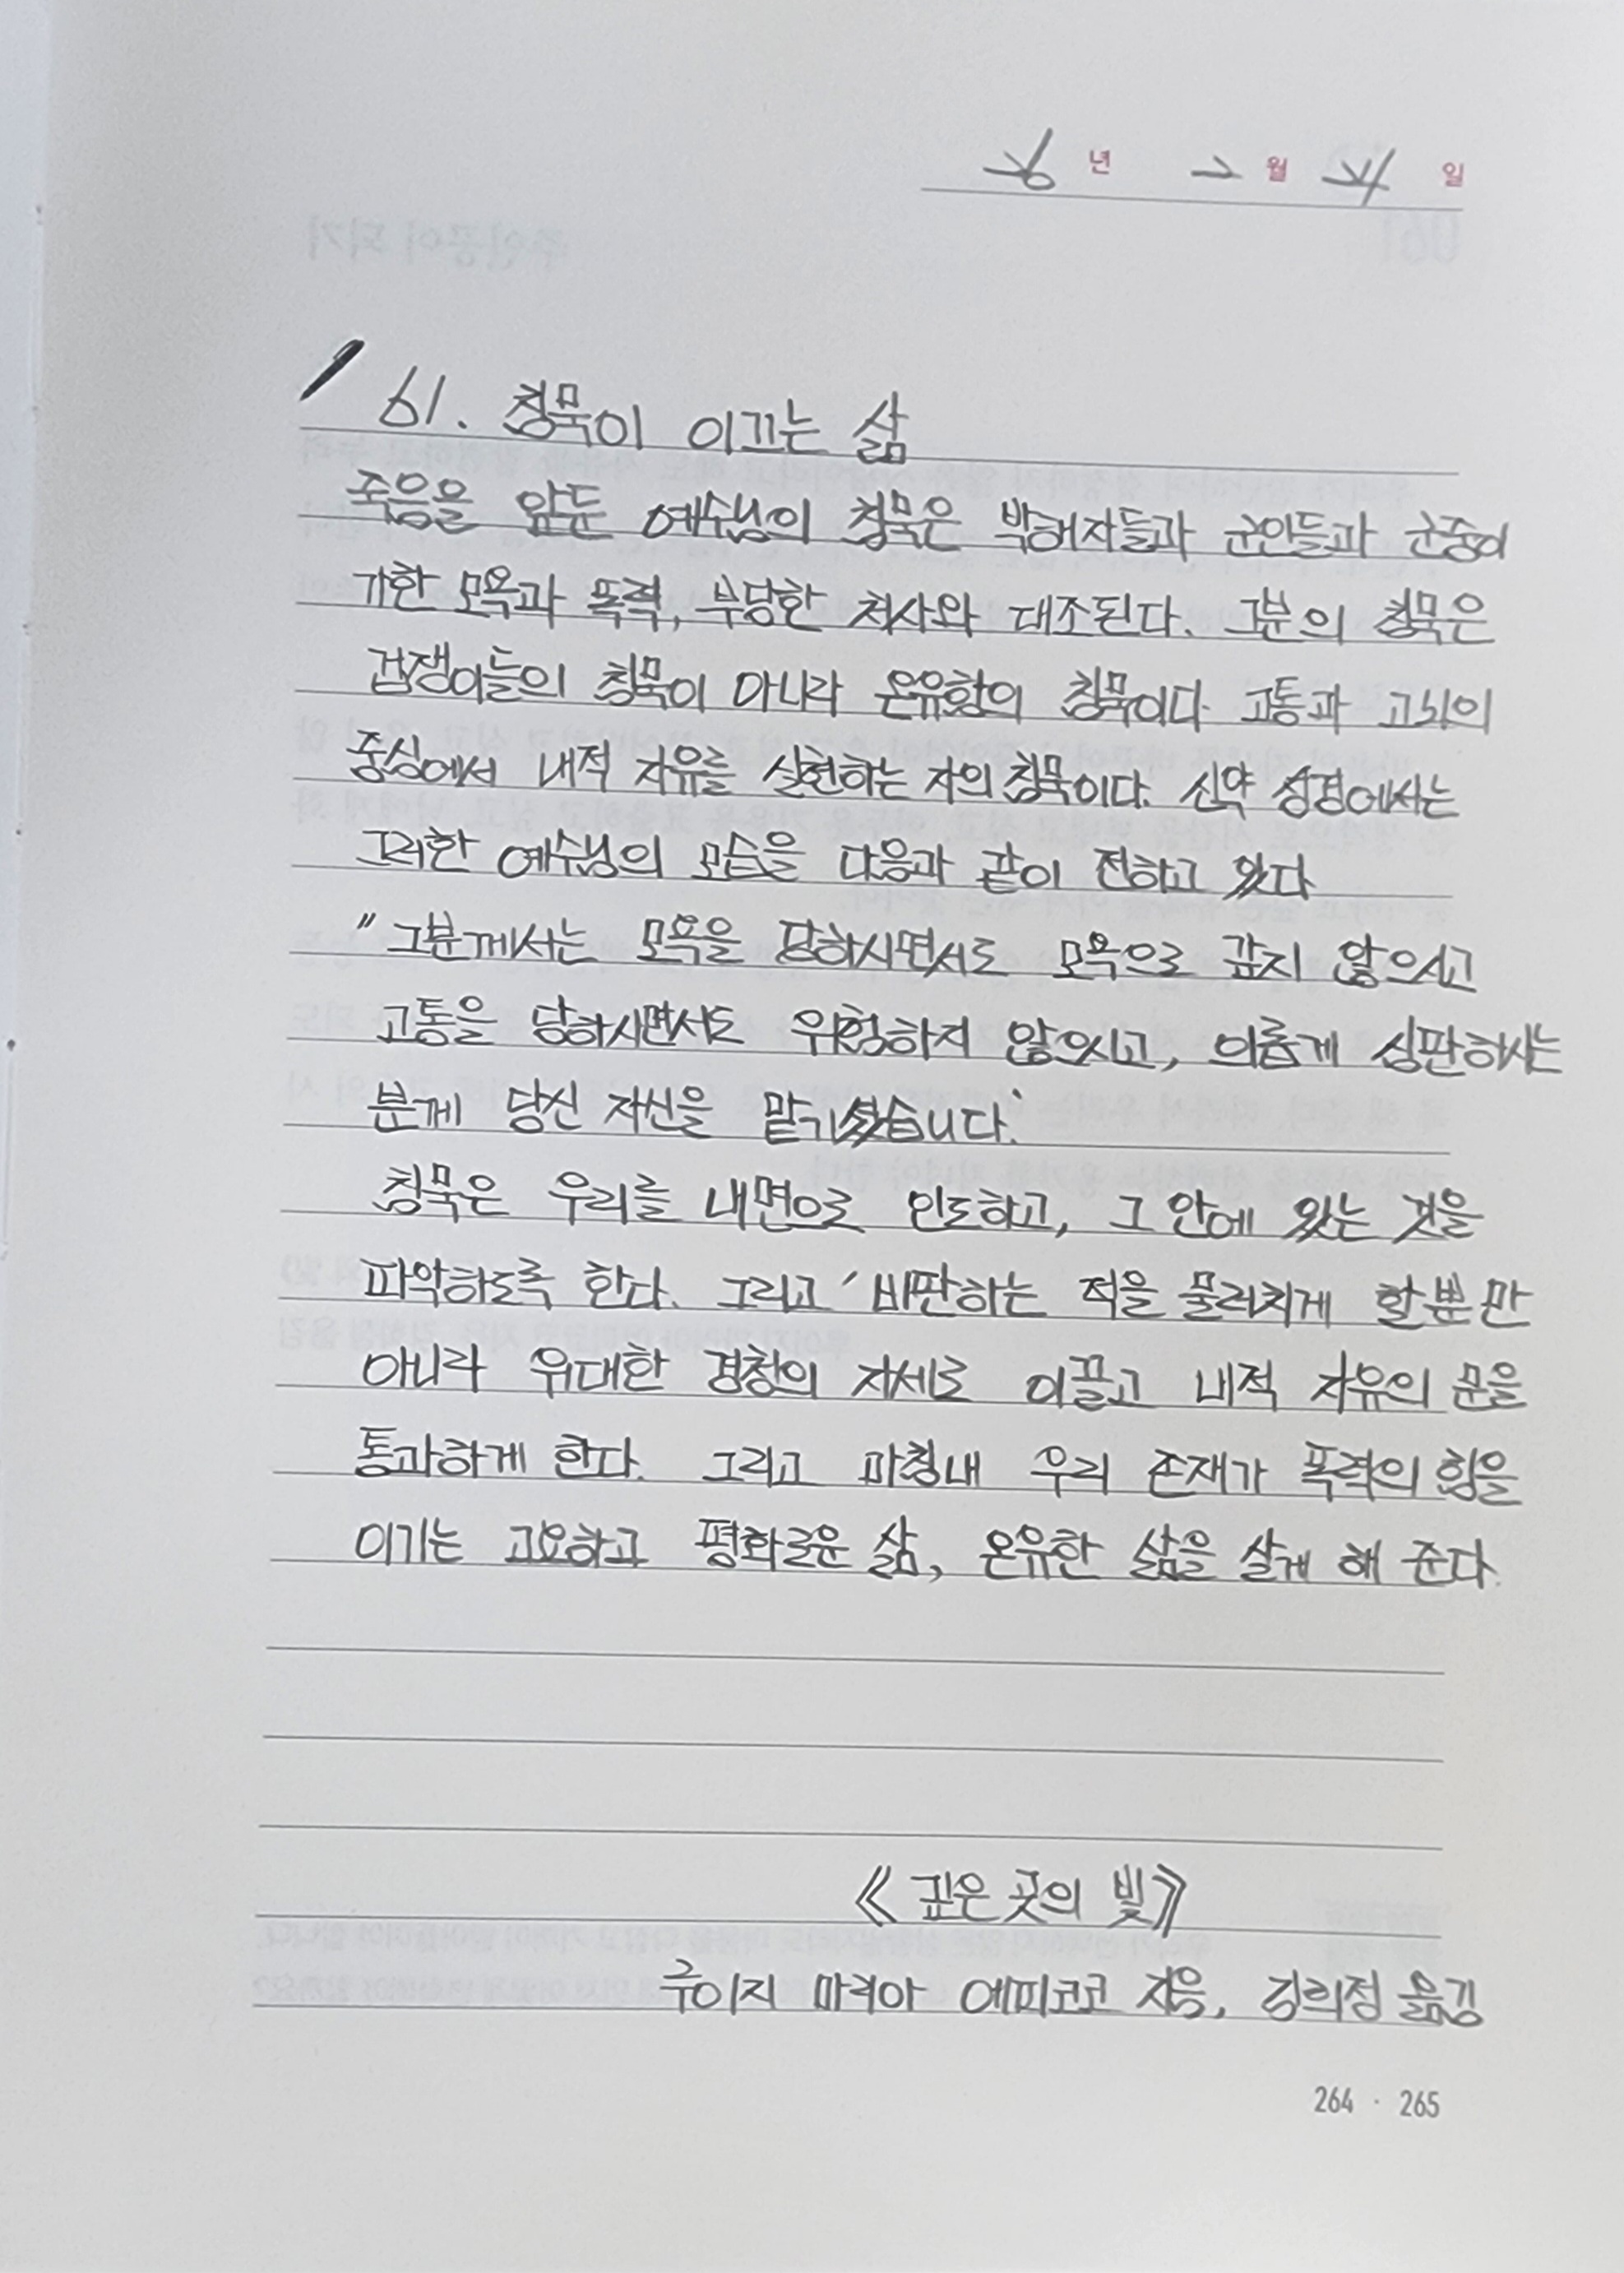 26 년 2 월 24 일
61. 침묵이 이끄는 삶
죽음을 앞둔 예수님의 침묵은 박해자들과 군인들과 군중이
가한 모욕과 폭력, 부당한 처사와 대조된다. 그분의 침묵은
겁쟁이들의 침묵이 아니라 온유함의 침묵이다. 고통과 고뇌의
중심에서 내적 자유를 실현하는 자의 침묵이다. 신약 성경에서는
그러한 예수님의 모습을 다음과 같이 전하고 있다
"그분께서는 모욕을 당하시면서도 모욕으로 갚지 않으시고
고통을 당하시면서도 위협하지 않으시고, 의롭게 심판하시는
분께 당신 자신을 맡기셨습니다.'
침묵은 우리를 내면으로 인도하고, 그 안에 있는 것을
파악하도록 한다. 그리고 ' 비판하는 적을 물리치게 할뿐만
아니라 위대한 경청의 자세로 이끌고 내적 자유의 문을
통과하게 한다. 그리고 마침내 우리 존재가 폭력의 힘을
이기는 고요하고 평화로운 삶, 온유한 삶을 살게 해 준다.
《깊은 곳의 빛》
루이지 마리아 에피코코 지음, 강희정 옮김
264 · 265